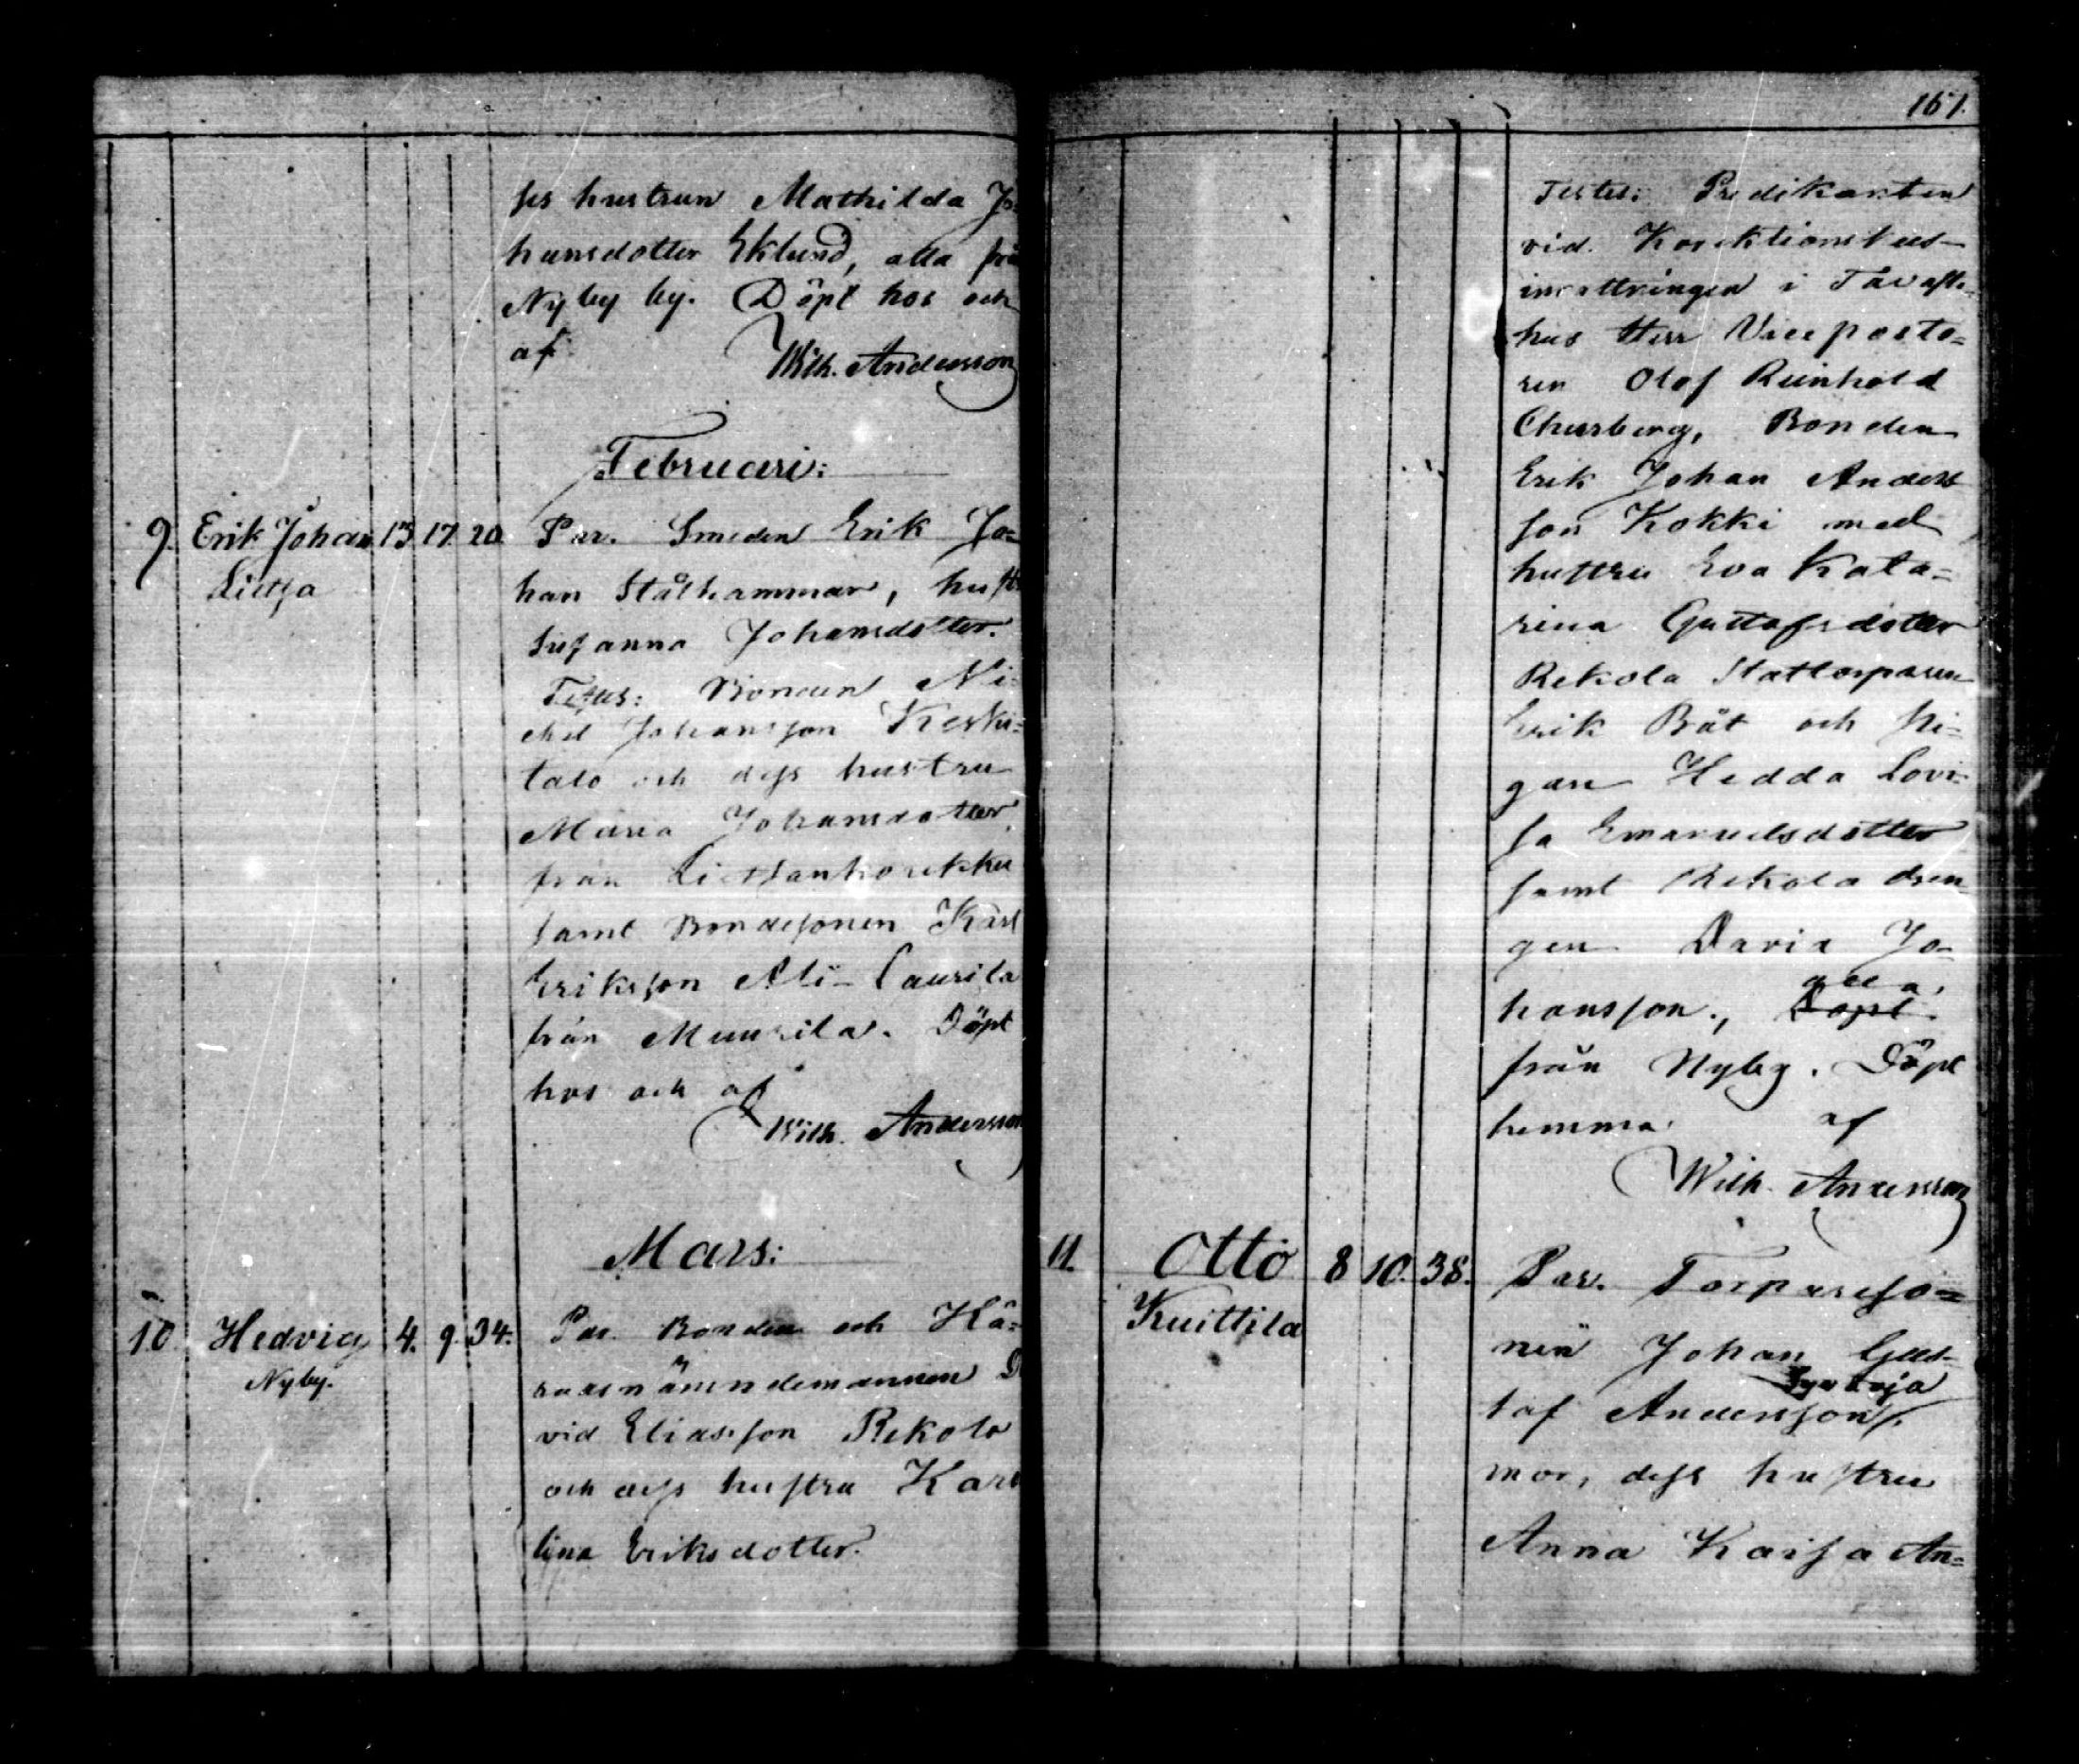 ses hustrun Mathilda Jo-
hansdotter Eklund, alla från
Nyby by. Döpt hos och
af Wilh. Andersson
Februari:
9. Erik Johan 13 17. 20. Par. Smeden Erik Jo=
Lietsa
han Stålhammar, hustr
Susanna Johansdotter.
Testes: Bonden Mi-
chel Johansson Keski=
talo och dess hustru
Maria Johansdotter,
från
samt Bondesonen Karl
Eriksson Ali-Laurila
från Muurila. Döpt
hos och af
Wilh. Andersson
Mars:
10 Hedvig 4. 9. 34. Par. Bonden och Hä=
Nyby.
radsnämndemannen Da
vid Eliasson Rekola
och dess hustru Karo
lina Eriksdotter.
161.
Testes: Predikanten
vid Korektionshus-
inrättningen i Tavaste-
hus Herr Vicepasto=
ren Olof Reinhold
Churberg, Bonden
Erik Johan Anders
son Kokki med
hustru Eva Kata=
rina Gustafsdotter
Rekola Stattorparen
Erik Båt och Pi-
gan Hedda Lovi-
sa Emanuelsdotter
samt Rekola dren
gen David Jo-
alla,
hansson., Döpt.
från Nyby. Döpt
hemma af
Wilh. Andersson
11. Otto 8 10. 38. Par. Torpareso=
Kuittila
nen Johan Gus-
taf Andersson
mor, dess hustru
Anna Kaisa An=